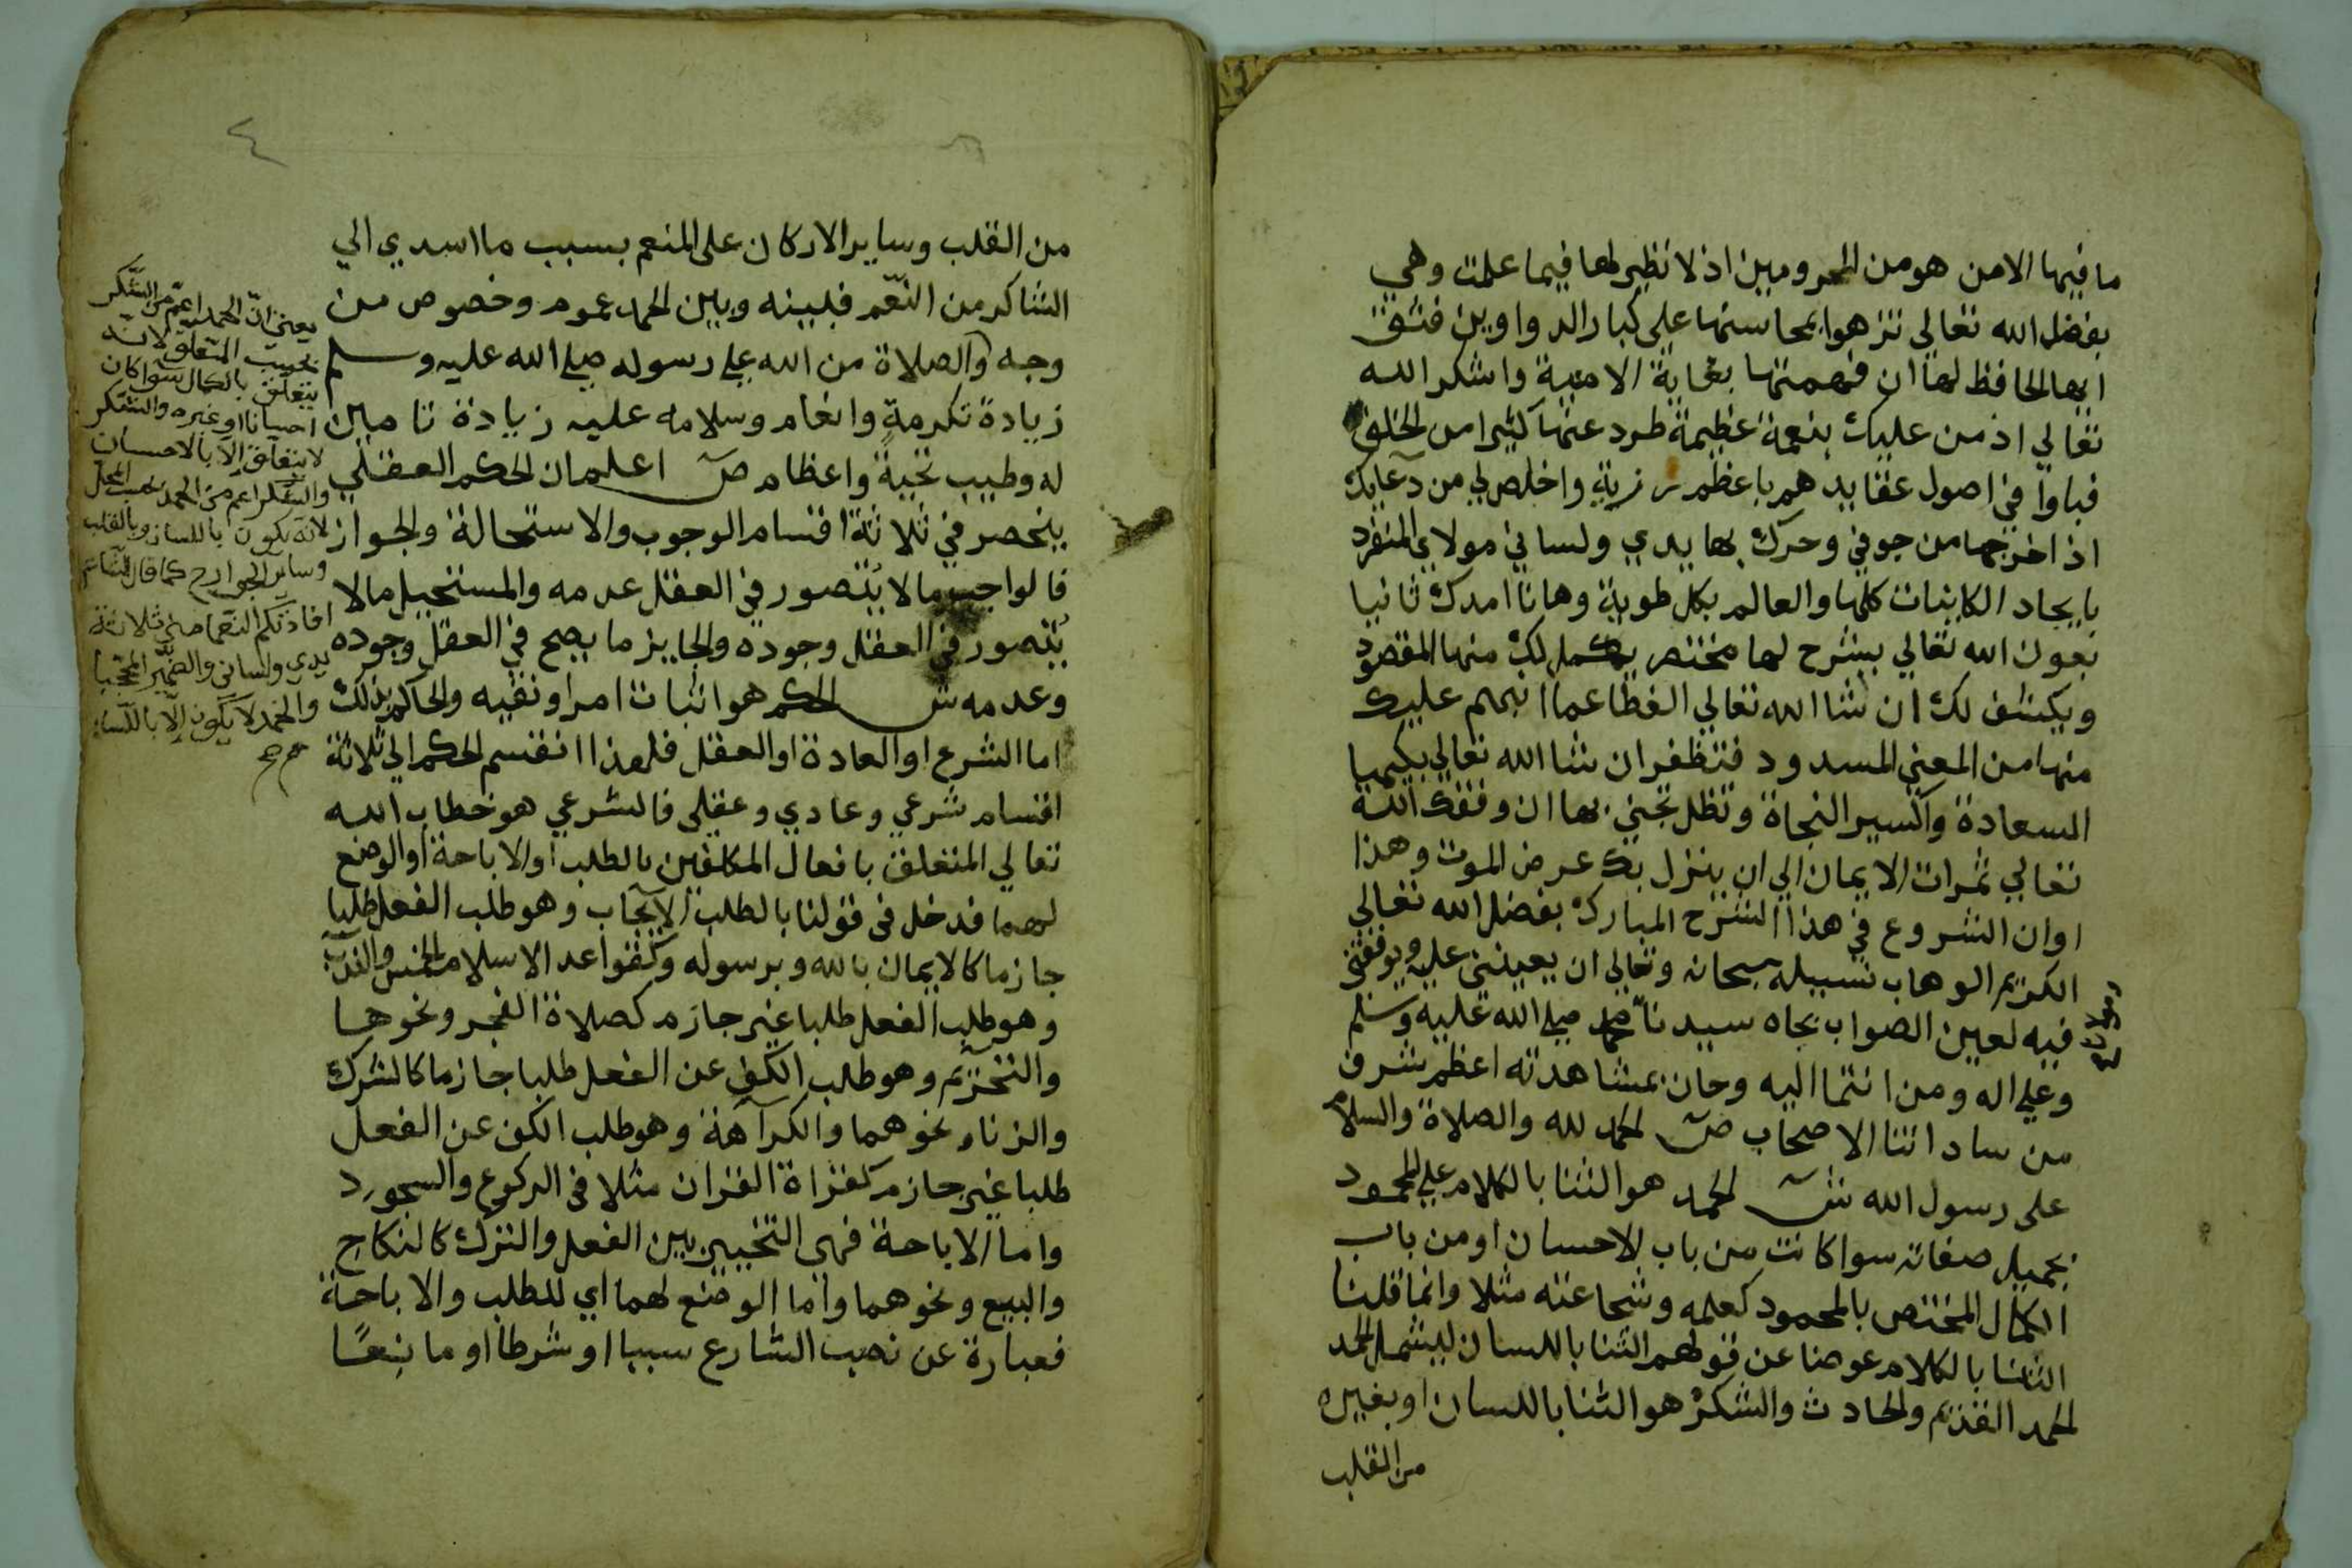 ما فيها الا من هو من المحرومين اذ لا نظير لها فيما علمت وهي
بفضل الله تعالي تزهوا بمحاسنها علي كبار الدواوين فثق
ايها الحافظ لها ان فهمتها بغاية الامنية واشكر الله
تعالي اذ من عليك بنعمة عظيمة طرد عنها كثيرا من الخلق
فباوا في اصول عقايدهم باعظم رزية واخلص لي من دعايك
اذ اخرجها من جوفي وحرك بها يدي ولساني مولاي المنفرد
بايجاد الكاينات كلها والعالم بكل طوية وها نا امدك ثانيا
بعون الله تعالي بشرح لها مختصر يكمل لك منها المقصود
ويكشف لك ان شا الله تعالي الغطا عما انبهم عليك
منها من المعني المسدود فتظفر ان شا الله تعالي بكيميا
السعادة واكسير النجاة وتظل تجني بها ان وفقك الله
تعالي ثمرات الايمان الي ان ينزل بك عرض الموت وهذا
اوان الشروع في هذا الشرح المبارك بفضل الله تعالي
الكريم الوهاب نسيله سبحانه وتعالي ان يعينني عليه ويوفقني
فيه لعين الصواب بجاه سيدنا محمد صلي الله عليه وسلم
وعلي اله ومن انتما اليه وحان بمشاهدته اعظم شرف
من ساداتنا الاصحاب ص الحمد لله والصلاة والسلام
على رسول الله ش الحمد هو الثنا بالكلام علي المحمود
بجميل صفاته سوا كانت من باب الاحسان او من باب
الكمال المختص بالمحمود كعلمه وشجاعته مثلا وانما قلنا
الثنا بالكلام عوضا عن قولهم الثنا باللسان ليشمل الحد
الحمد القديم والحادث والشكر هو الثنا باللسان او بغيره
من القلب
٤
من القلب وساير الاركان على المنعم بسبب ما اسدي الي
الشاكر من النعم فبينه وبين الحمد عموم وخصوص من
وجه والصلاة من الله علي رسوله صلي الله عليه وسلم
زيادة تكرمة وانعام وسلامه عليه زيادة تامين
له وطيب تحية واعظام ص اعلم ان الحكم العقلي
ينحصر في ثلاثة اقسام الوجوب والاستحالة والجواز
فالواجب ما لا يتصور في العقل عدمه والمستحيل ما لا
يتصور في العقل وجوده والجايز ما يصح في العقل وجوده
وعدمه ش الحكم هو اثبات امر او نفيه والحاكم بذلك
اما الشرع او العادة او العقل فلهذا انقسم الحكم الي ثلاثة
اقسام شرعي وعادي وعقلي فالشرعي هو خطاب الله
تعالي المتعلق بافعال المكلفين بالطلب او الاباحة او الوضع
لهما فدخل في قولنا بالطلب الايجاب وهو طلب الفعل طلبا
جازما كالايمان بالله وبرسوله وكقواعد الاسلام الخمس والندب
وهو طلب الفعل طلبا غير جازم كصلاة الفجر ونحوها
والتحريم وهو طلب الكف عن الفعل طلبا جازما كالشرك
والزنا ونحوهما والكراهة وهو طلب الكف عن الفعل
طلبا غير جازم كقراة القران مثلا في الركوع والسجود
واما الاباحة فهي التخيير بين الفعل والترك كالنكاح
والبيع ونحوهما واما الوضع لهما اي للطلب والاباحة
فعبارة عن نصب الشارع سببا او شرطا او مانعا
يعني ان الحمد اعم من الشكر
بحسب المتعلق لانه
يتعلق بالكمال سوا كان
احسانا او غيره والشكر
لا يتعلق الا بالاحسان
والشكر اعم من الحمد بحسب المحل
لانه يكون باللسان وبالقلب
وساير الجوارح كما قال الشاعر
افادتكم النعما مني ثلاثة
يدي ولساني والضمير المحجبا
والحمد لا يكون الا باللسان